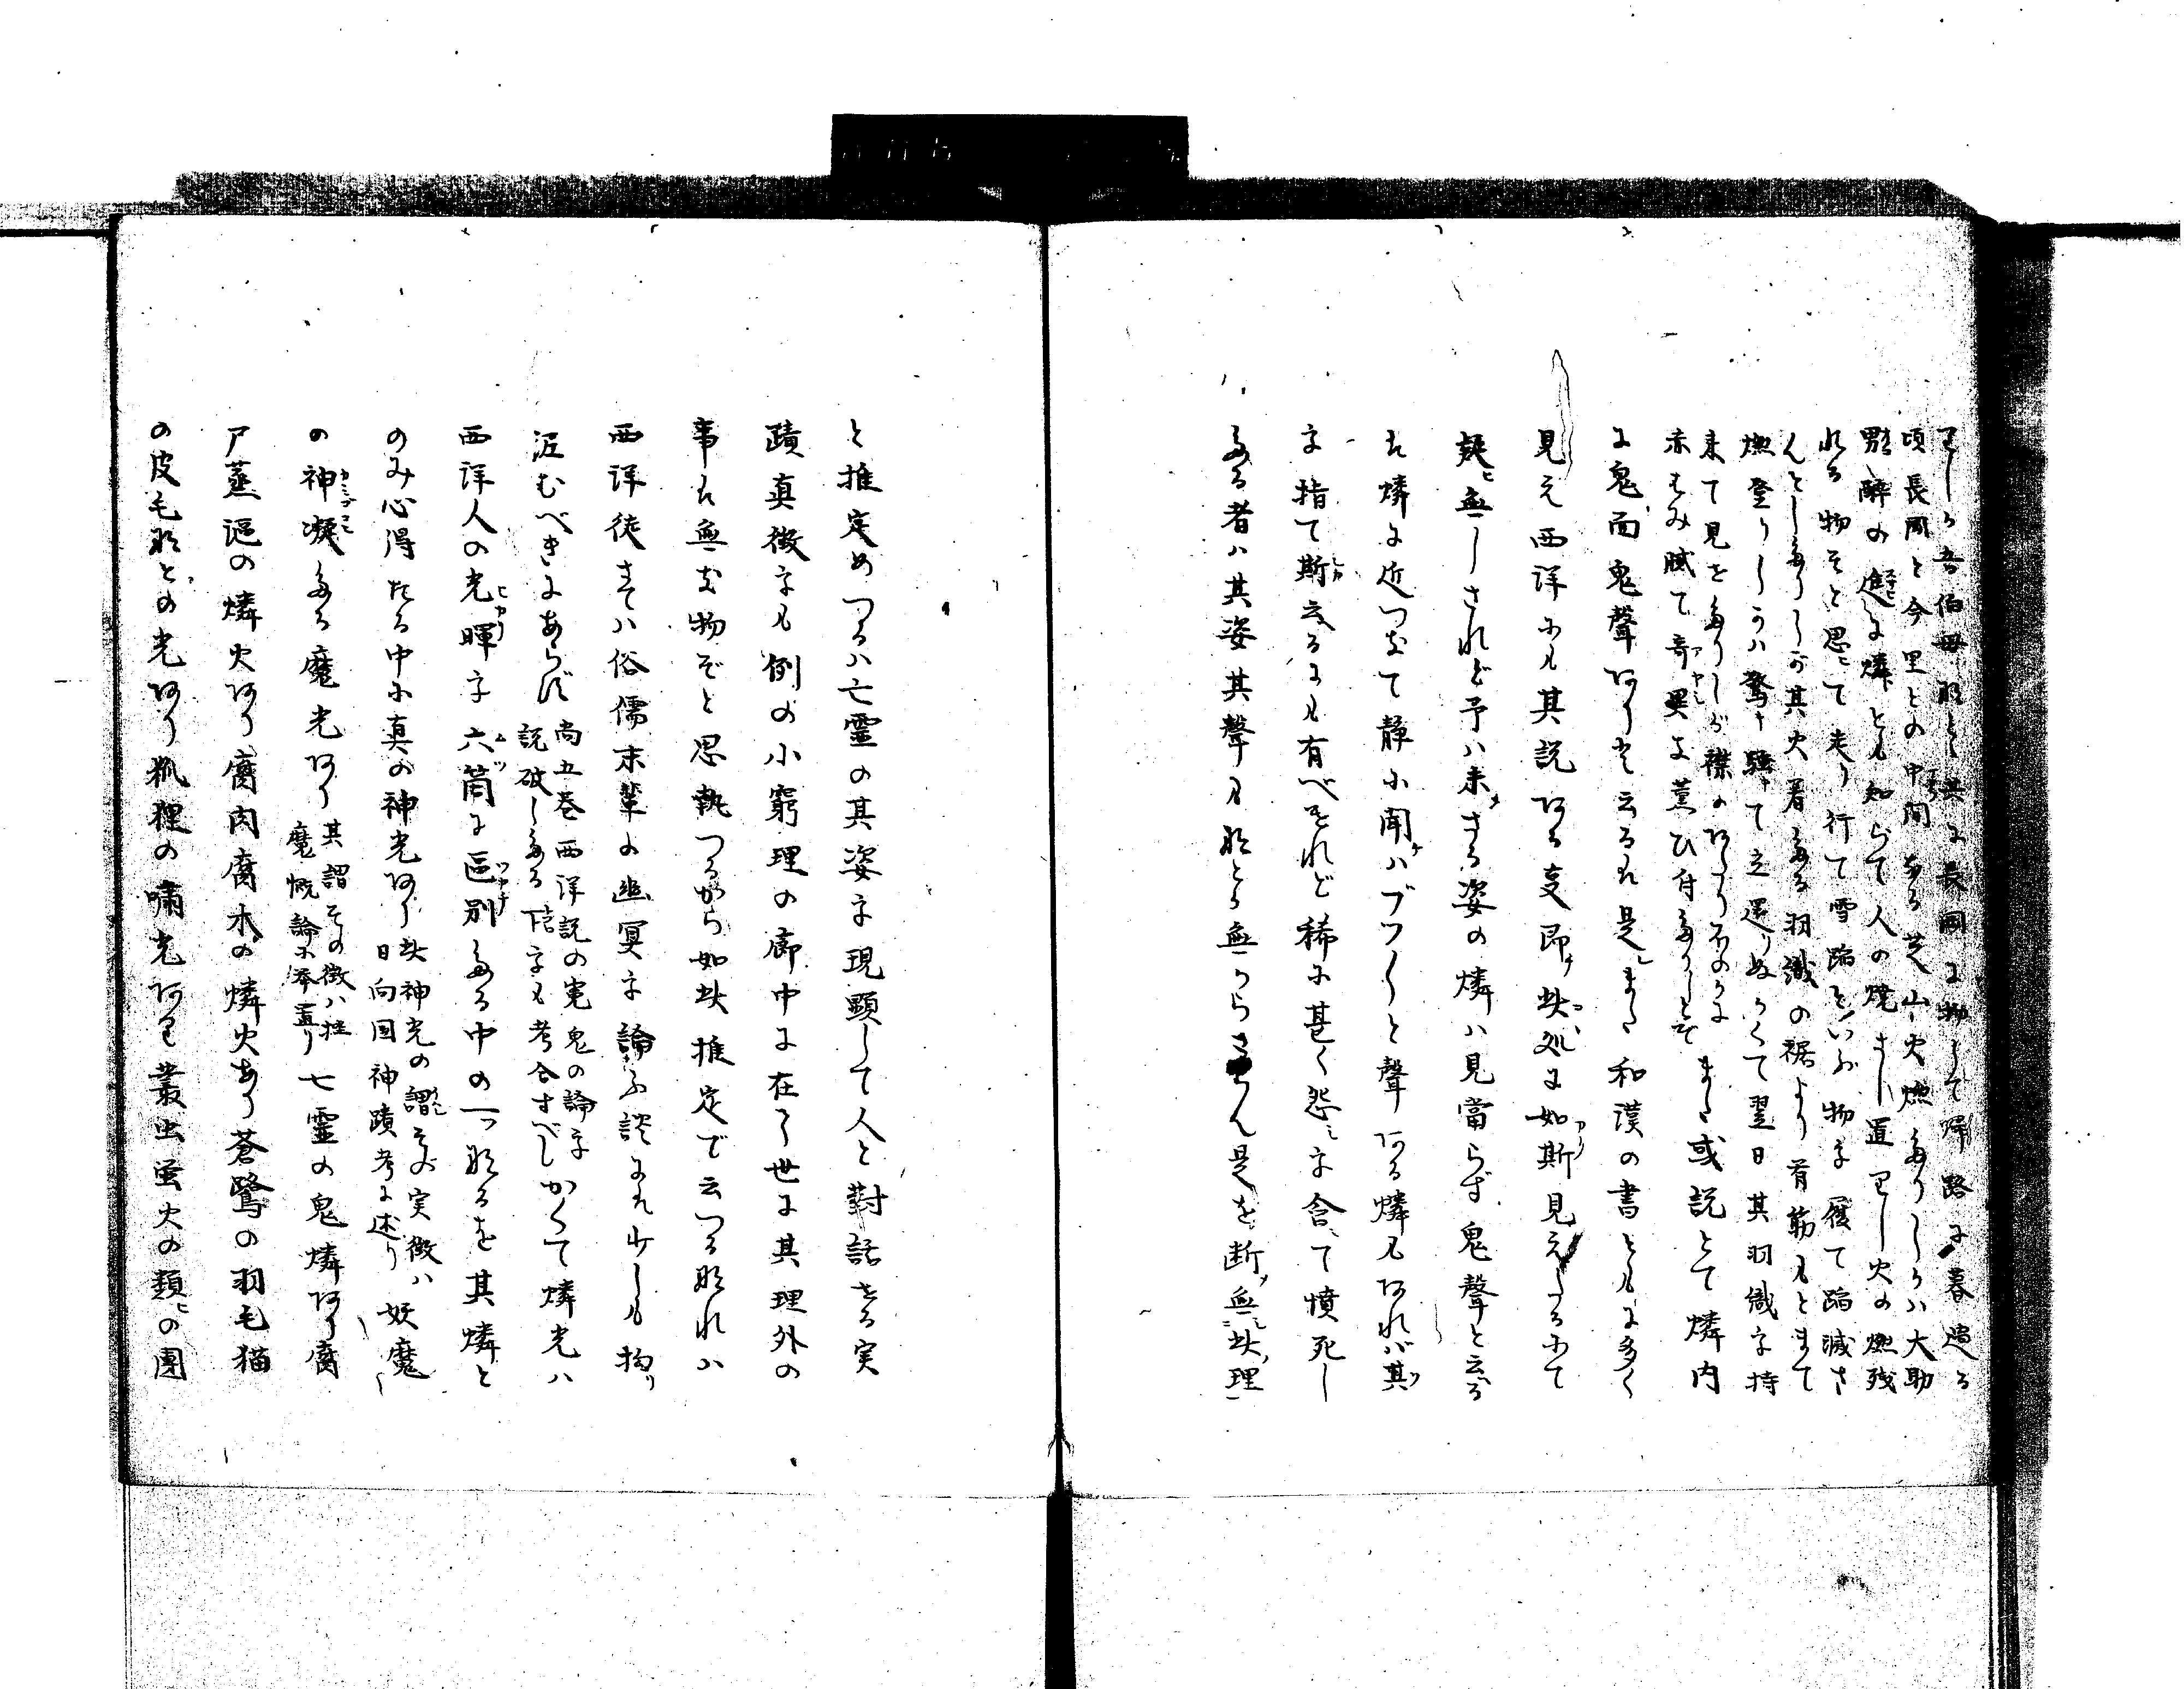 てし吾伯母なと共に長岡に物して帰路に暮過る
頃長岡と今里との中間なる芝山火燃たりしは大助
酔の進に燐とも知らで人の焼し置し火の燃残
れる物そと思て走り行て雪踏といふ物を履て踏滅さ
んとしたりしが其火着たる羽織の裾より首筋もとまて
燃登りしかハ驚き騒て立還りぬかくて翌日其羽織を持
来て見せたりしが襟の
赤はみ膩て奇異な薫ひ付たりしとぞ また或説とて燐内
に鬼面鬼聲ありと云るは是また和漢の書ともに多く
見え西洋にも其説ある支即此処に如斯見えたるにて
疑無しされど予ハ未さる姿の燐ハ見當らず鬼聲と云る
は燐に近つきて静に聞ハブツ〱と聲ある燐もあれバ其
を指て斯云るにも有べけれど稀に甚く怨を含て憤死し
たる者ハ其姿其聲も無からさらん是を断無此理
と推定めつるハ亡霊の其姿を現顕して人と對話せる実
蹟真徴をも例の小窮理の廓中に在て世に其理外の
事は無き物ぞと思執つるから如此推定て云つるなれハ
西洋徒まてハ俗儒末輩の幽冥を論ふ談には少しも拘
泥むべきにあらず 尚五巻西洋説の寃鬼の論を
説破したる條をも考合すべし かくて燐光ハ
西洋人の光暉を六箇に區別たる中の一つなるを其燐と
のみ心得たる中に真の神光あり 此神光の謂その実徴ハ
日向国神蹟考に述り 妖魔
の神凝たる魔光あり 其謂その徴ハ拙
魔慨論に挙置り 亡霊の鬼燐あり腐
尸蒸漚の燐火あり腐肉腐木の燐火あり蒼鷺の羽毛猫
の皮毛なとの光あり狐狸の嘯光あり叢虫蛍火の類の團